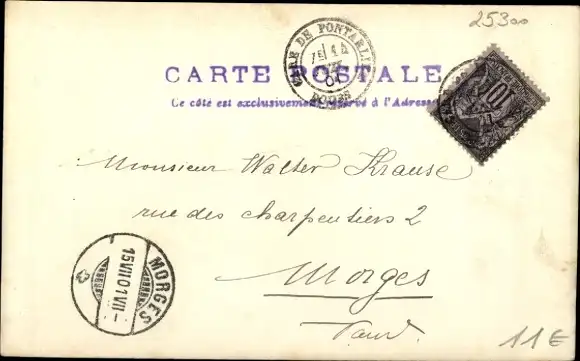 25300
GARE DE PONTARLIER
DOUBS
10
CARTE POSTALE
Ce côté est exclusivement réservé à l'Adresse
Monsieur Walter Krause
rue des charpentiers 2
Morges
Vaud.
MORGES
15 VII 01 VII-
11€